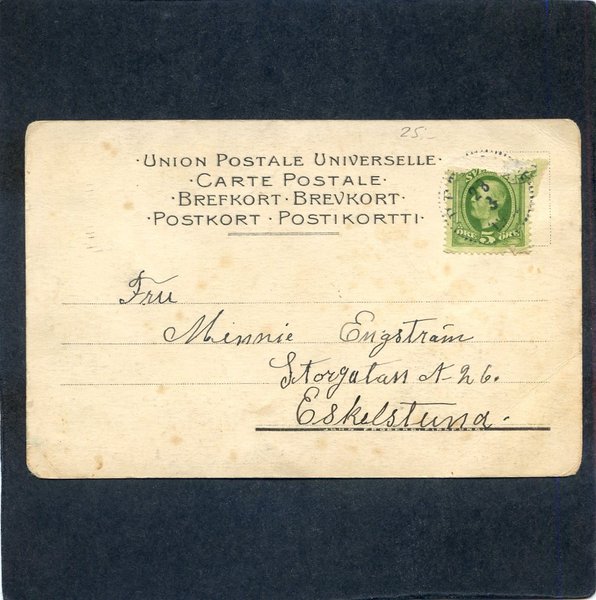 25.-
·UNION POSTALE UNIVERSELLE·
·CARTE POSTALE·
·BREFKORT·BREVKORT·
·POSTKORT·POSTIKORTTI·
5
Fru
Minnie Engström
Storgatan N 26.
Eskelstuna.